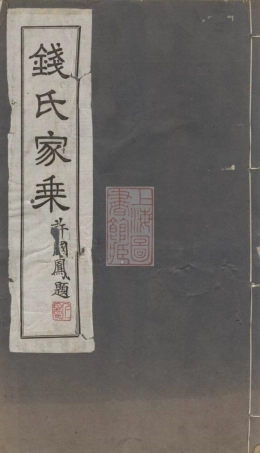 錢氏家乘
許國鳳題
上海圖書館藏